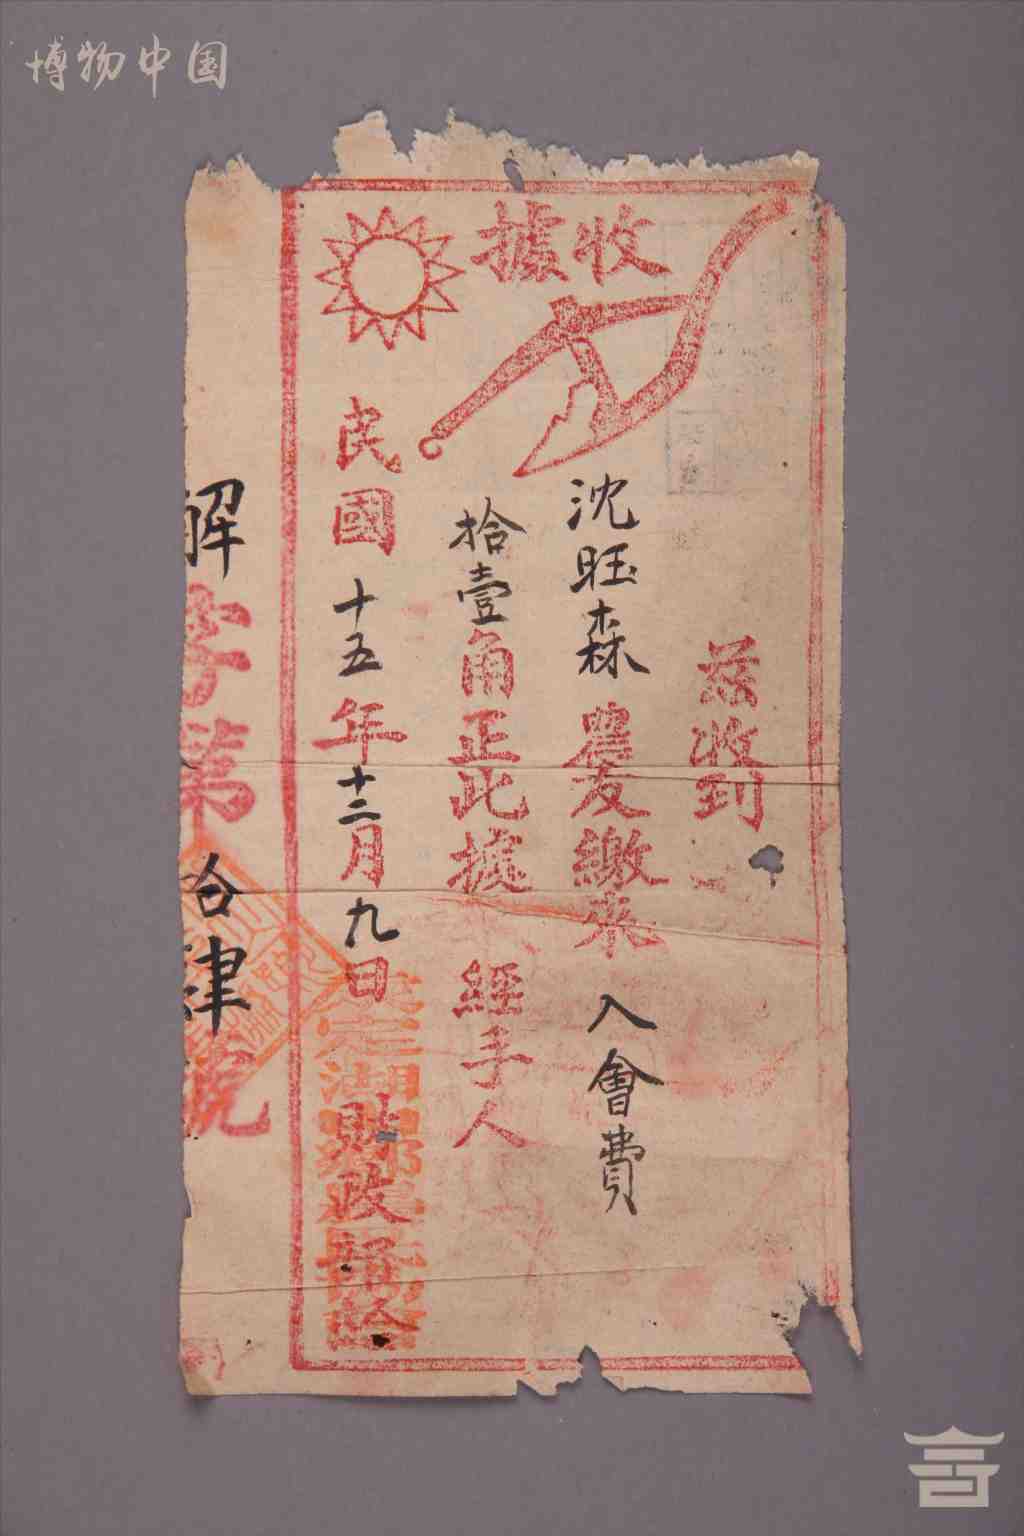 博物中国
收據
茲收到
沈旺森農友繳來入會費
拾壹角正此據 經手人
民國十五年十二月九日
財政
字第 號